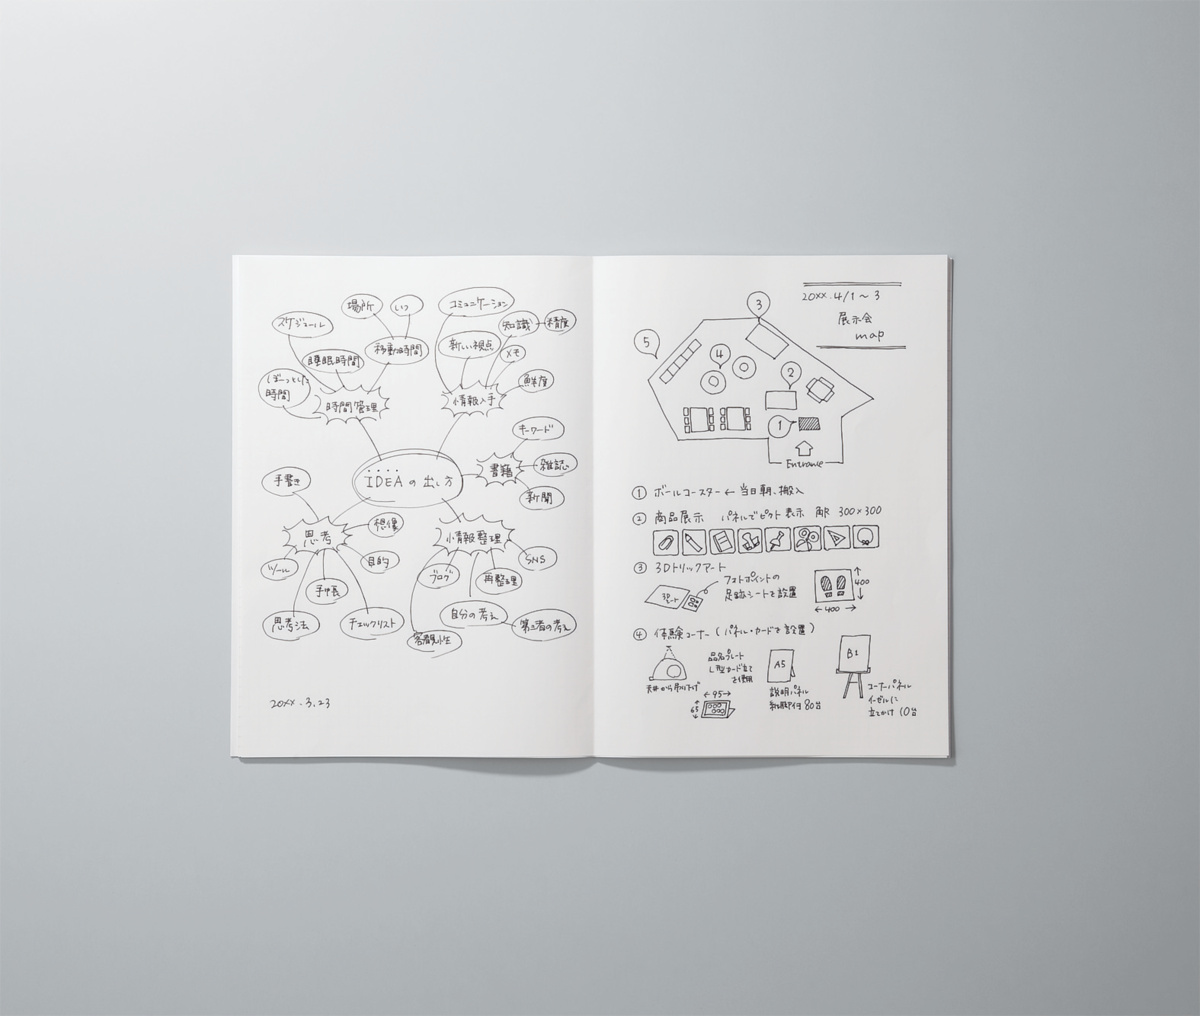 コミュニケーション
場所
いつ
スケジュール
知識
精度
移動時間
新しい視点
メモ
睡眠時間
ぼーっとした
時間
鮮度
時間管理
情報入手
キーワード
書籍
雑誌
IDEAの出し方
手書き
新聞
想像
思考
情報整理
SNS
ツール
目的
ブログ
再整理
手帳
自分の考え
第三者の考え
思考法
チェックリスト
客観性
20XX.3.23
20XX.4/1〜3
展示会
map
3
5
4
2
1
Entrance
① ボールコースター ← 当日朝、搬入
② 商品展示 パネルでピクト表示 300×300
③ 3Dトリックアート
フォトポイントの
足跡シートを設置
3D
シート
400
400
④ 体験コーナー(パネル・カードを設置)
天井から吊り下げ
品名プレート
L型カード立て
を使用
95
65
A5
説明パネル
80台
B1
コーナーパネル
イーゼルに
立てかけ 10台